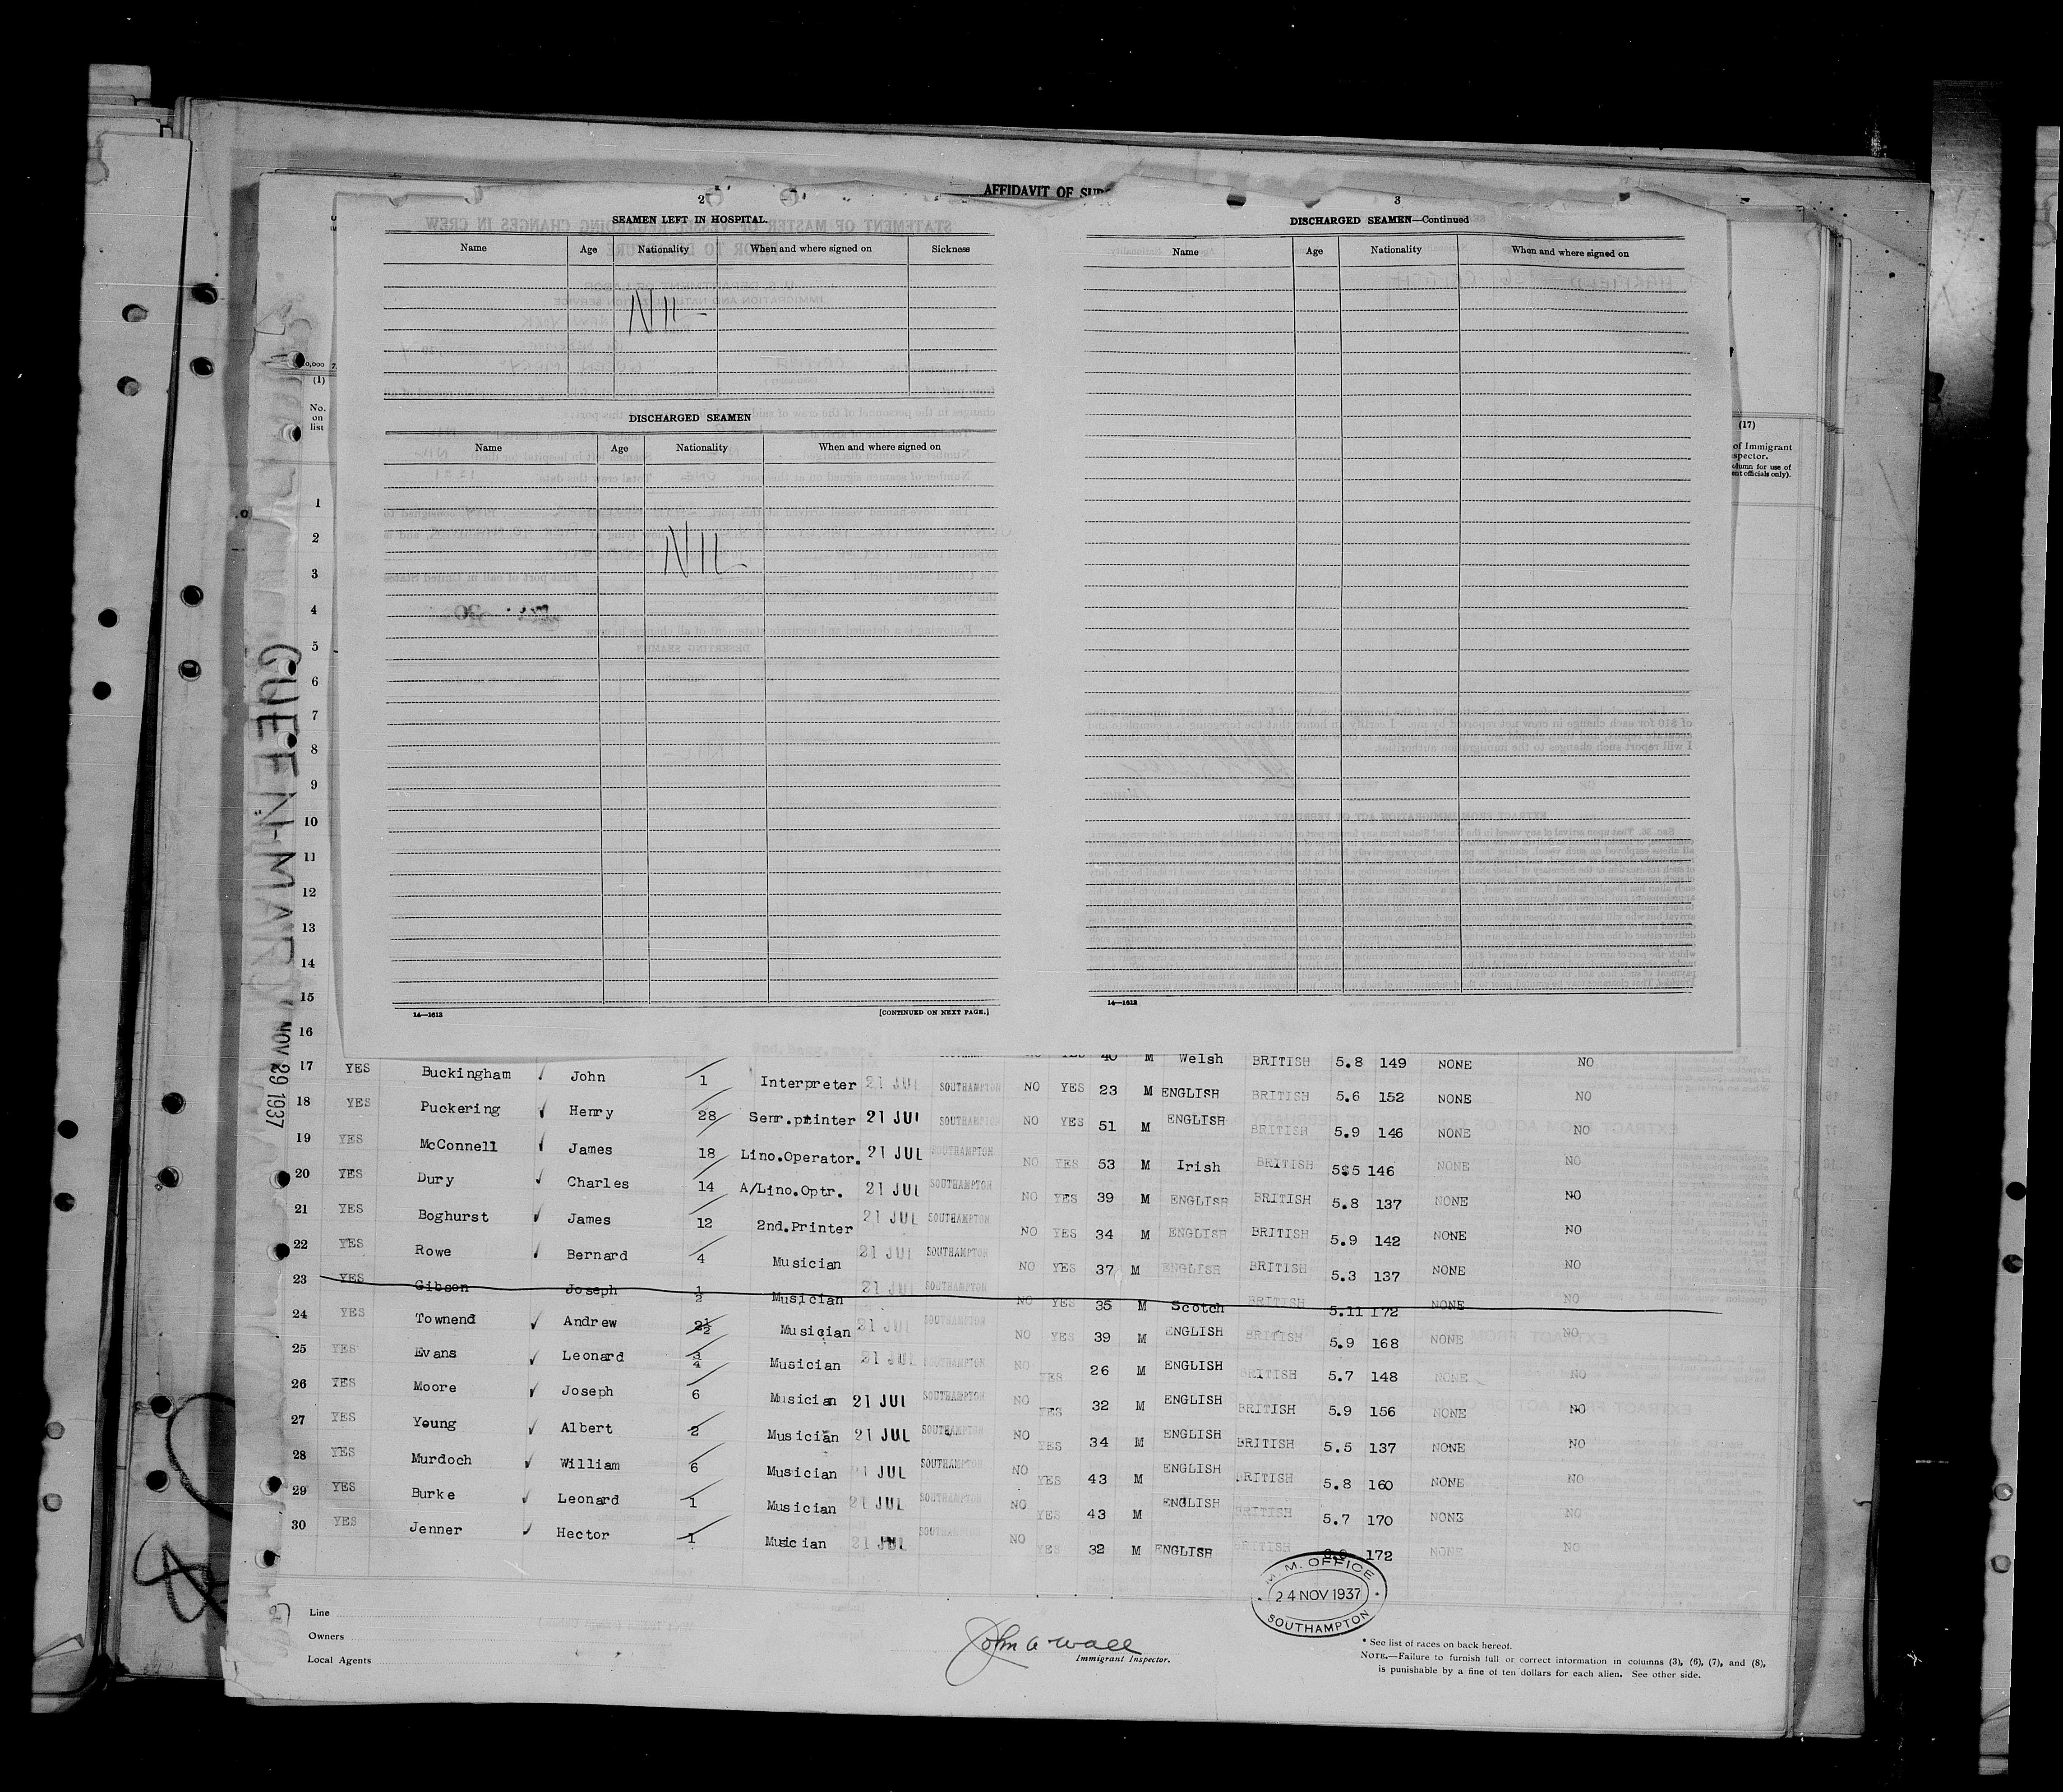 AFFIDAVIT OF
2
SEAMEN LEFT IN HOSPITAL.
Name Age Nationality When and where signed on Sickness
NIL
DISCHARGED SEAMEN
Name Age Nationality When and where signed on
NIL
14—1613 [CONTINUED ON NEXT PAGE.]
3
DISCHARGED SEAMEN—Continued
Name Age Nationality When and where signed on
14—1613
(1)
No. on list
(17)
of Immigrant
QUEEN MARY NOV 29 1937
1
2
3
4
5
6
7
8
9
10
11
12
13
14
15
16
40 M Welsh BRITISH 5.8 149 NONE NO
17 YES Buckingham John 1 Interpreter 21 JUL SOUTHAMPTON NO YES 23 M ENGLISH BRITISH 5.6 152 NONE NO
18 YES Puckering Henry 28 Senr.printer 21 JUL SOUTHAMPTON NO YES 51 M ENGLISH BRITISH 5.9 146 NONE NO
19 YES McConnell James 18 Lino.Operator. 21 JUL SOUTHAMPTON NO YES 53 M Irish BRITISH 146 NONE NO
20 YES Dury Charles 14 A/Lino.Optr. 21 JUL SOUTHAMPTON NO YES 39 M ENGLISH BRITISH 5.8 137 NONE NO
21 YES Boghurst James 12 2nd.Printer 21 JUL SOUTHAMPTON NO YES 34 M ENGLISH BRITISH 5.9 142 NONE NO
22 YES Rowe Bernard 4 Musician 21 JUL SOUTHAMPTON NO YES 37 M ENGLISH BRITISH 5.3 137 NONE NO
23 YES Gibson Joseph 1/2 Musician 21 JUL SOUTHAMPTON NO YES 35 M Scotch BRITISH 5.11 172 NONE NO
24 YES Townend Andrew 2½ Musician 21 JUL SOUTHAMPTON NO YES 39 M ENGLISH BRITISH 5.9 168 NONE NO
25 YES Evans Leonard 3/4 Musician 21 JUL SOUTHAMPTON NO YES 26 M ENGLISH BRITISH 5.7 148 NONE NO
26 YES Moore Joseph 6 Musician 21 JUL SOUTHAMPTON NO YES 32 M ENGLISH BRITISH 5.9 156 NONE NO
27 YES Young Albert 2 Musician 21 JUL SOUTHAMPTON NO YES 34 M ENGLISH BRITISH 5.5 137 NONE NO
28 YES Murdoch William 6 Musician 21 JUL SOUTHAMPTON NO YES 43 M ENGLISH BRITISH 5.8 160 NONE NO
29 YES Burke Leonard 1 Musician 21 JUL SOUTHAMPTON NO YES 43 M ENGLISH BRITISH 5.7 170 NONE NO
30 YES Jenner Hector 1 Musician 21 JUL SOUTHAMPTON NO YES 32 M ENGLISH BRITISH 172 NONE NO
M. M. OFFICE
24 NOV 1937
SOUTHAMPTON
Line
Owners
Local Agents
John A Wall
Immigrant Inspector.
* See list of races on back hereof.
NOTE.—Failure to furnish full or correct information in columns (3), (6), (7), and (8),
is punishable by a fine of ten dollars for each alien. See other side.